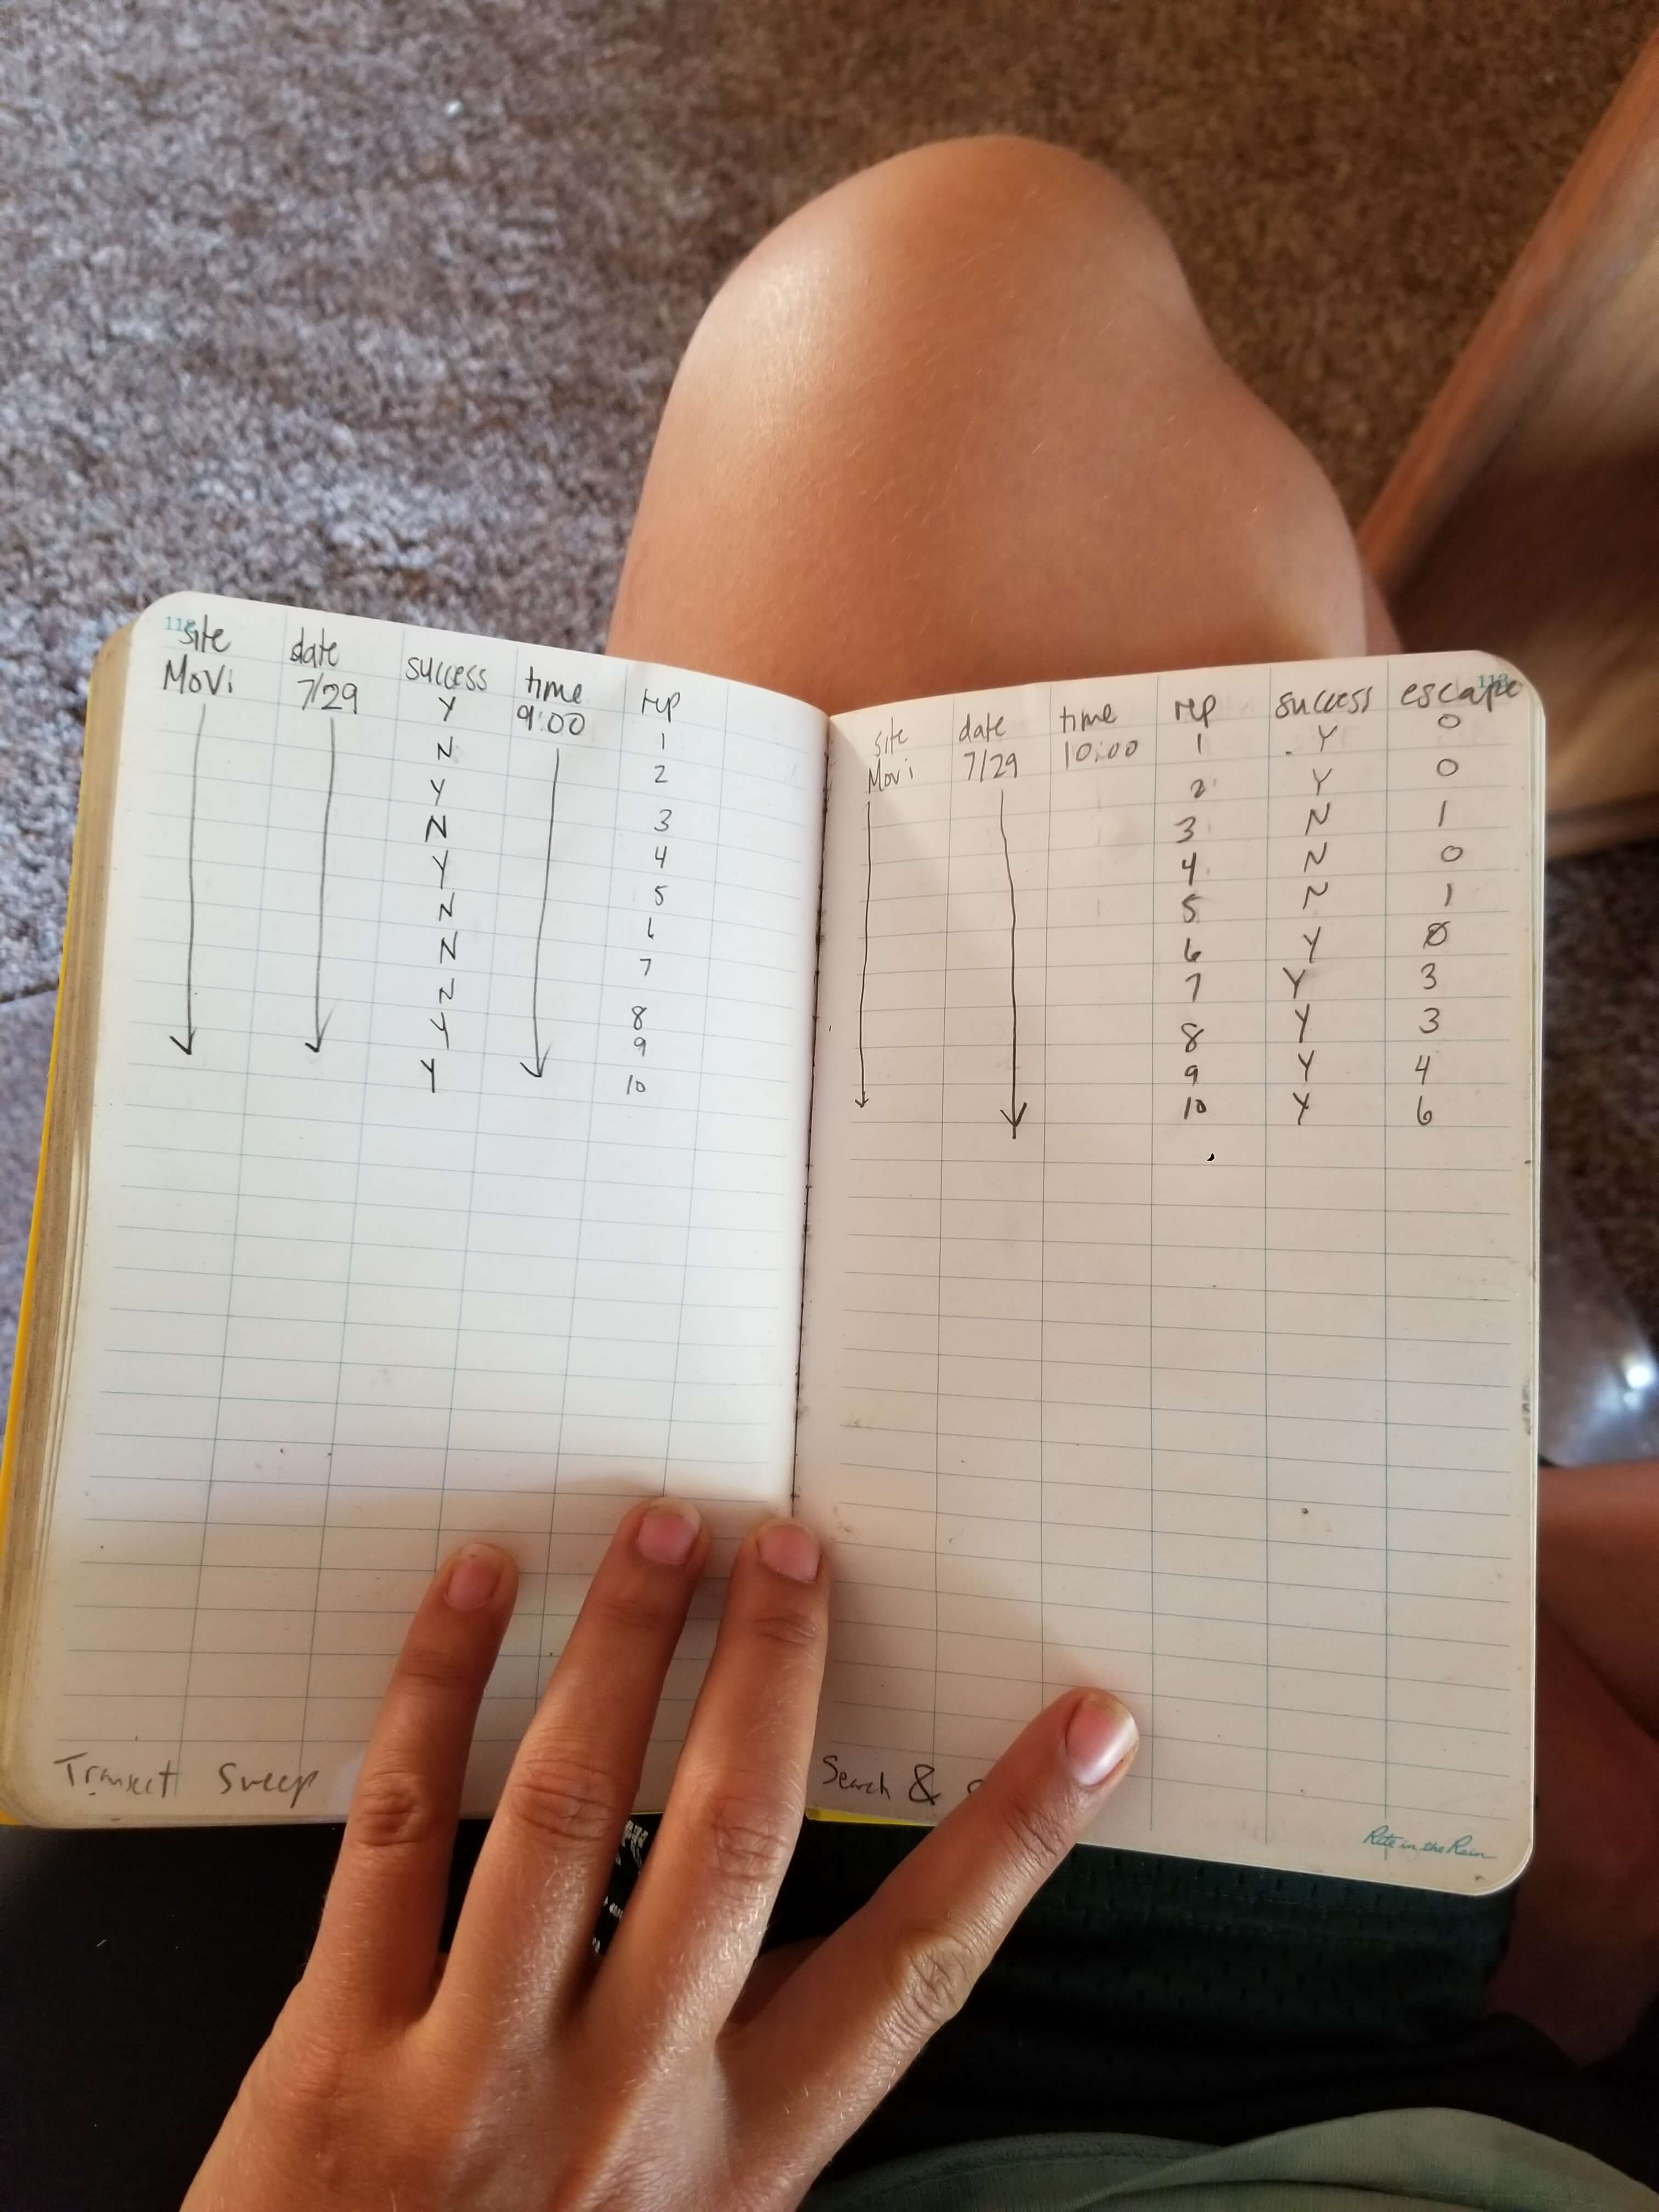 site date success time rep
Movi 7/29 Y 9:00 1
N 2
Y 3
N 4
Y 5
N 6
N 7
N 8
Y 9
Y 10
Transect Sweep
site date time rep success escape
Movi 7/29 10:00 1 Y 0
2 Y 0
3 N 1
4 N 0
5 N 1
6 Y 0
7 Y 3
8 Y 3
9 Y 4
10 Y 6
Search &
Rite in the Rain